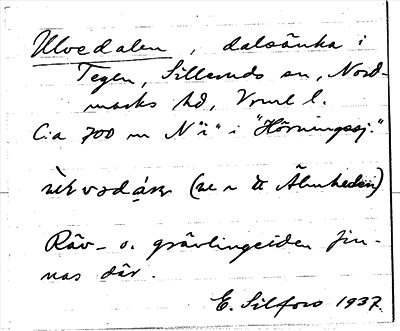 Ulvedalen, dalsänka i
Tegen, Silleruds sn, Nord-
marks hd, Vrml l.
C:a 700 m N "i" i "Hörningsj."
(se n Älmheden)
Räv- o. grävlingeiden fin-
nas där.
E. Silfors 1937.